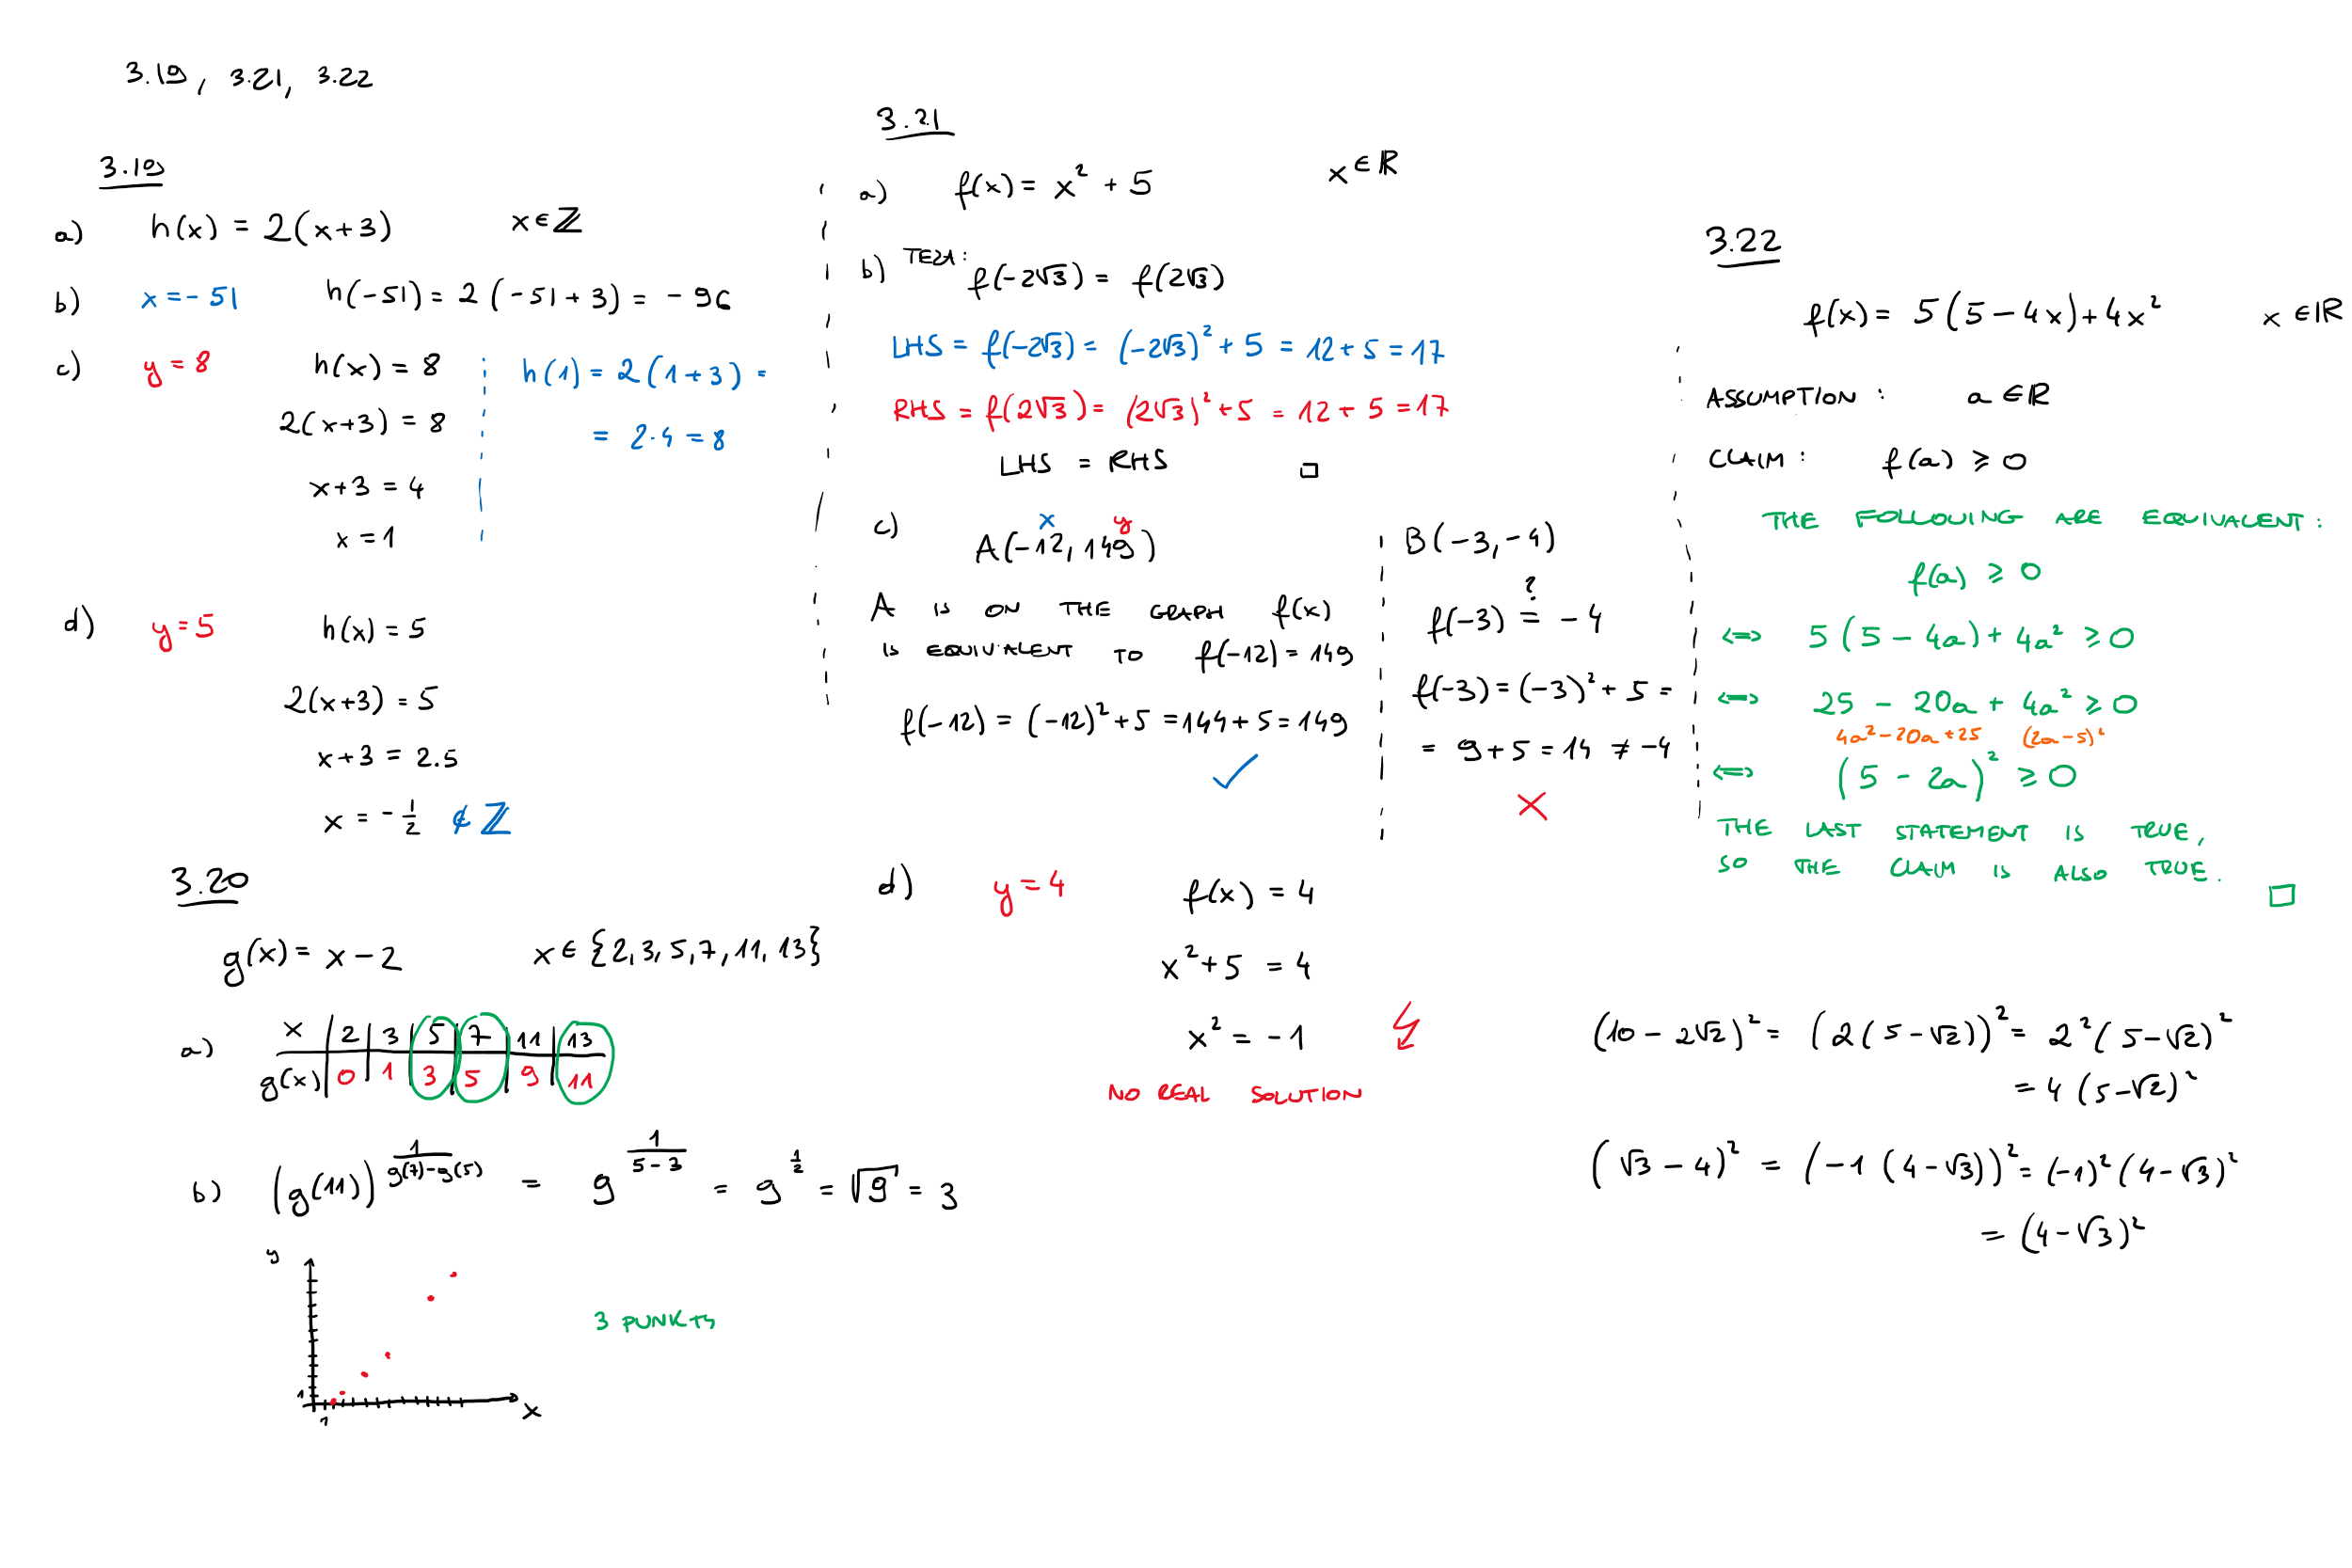 3.19, 3.21, 3.22
3.19
a) h(x) = 2(x+3) x∈ℤ
b) x=-51 h(-51) = 2(-51+3) = -96
c) y=8 h(x) = 8
2(x+3) = 8
x+3 = 4
x = 1
h(1) = 2(1+3) =
= 2·4 = 8
d) y=5 h(x) = 5
2(x+3) = 5
x+3 = 2.5
x = -1/2 ∉ ℤ
3.20
g(x) = x-2 x∈{2,3,5,7,11,13}
a) x | 2 | 3 | 5 | 7 | 11 | 13
g(x) | 0 | 1 | 3 | 5 | 9 | 11
b) (g(11))^(1/(g(7)-g(5))) = 9^(1/(5-3)) = 9^(1/2) = √9 = 3
y
1
1
x
3 PUNKTY
3.21
a) f(x) = x² + 5 x∈ℝ
b) TEZA: f(-2√3) = f(2√3)
LHS = f(-2√3) = (-2√3)² + 5 = 12+5 = 17
RHS = f(2√3) = (2√3)² + 5 = 12+5 = 17
LHS = RHS □
c) x y
A(-12, 149)
A IS ON THE GRAPH f(x)
IS EQUIVALENT TO f(-12) = 149
f(-12) = (-12)² + 5 = 144 + 5 = 149
✓
B(-3, -4)
f(-3) ?= -4
f(-3) = (-3)² + 5 =
= 9+5 = 14 ≠ -4
✗
d) y=4 f(x) = 4
x²+5 = 4
x² = -1 ↯
NO REAL SOLUTION
3.22
f(x) = 5(5-4x)+4x² x∈ℝ
ASSUMPTION: a∈ℝ
CLAIM: f(a) ⩾ 0
THE FOLLOWING ARE EQUIVALENT:
f(a) ⩾ 0
⟺ 5(5-4a)+4a² ⩾ 0
⟺ 25 - 20a + 4a² ⩾ 0
4a²-20a+25 (2a-5)²
⟺ (5-2a)² ⩾ 0
THE LAST STATEMENT IS TRUE,
SO THE CLAIM IS ALSO TRUE. □
(10-2√2)² = (2(5-√2))² = 2²(5-√2)²
= 4(5-√2)²
(√3-4)² = (-1(4-√3))² = (-1)²(4-√3)²
= (4-√3)²